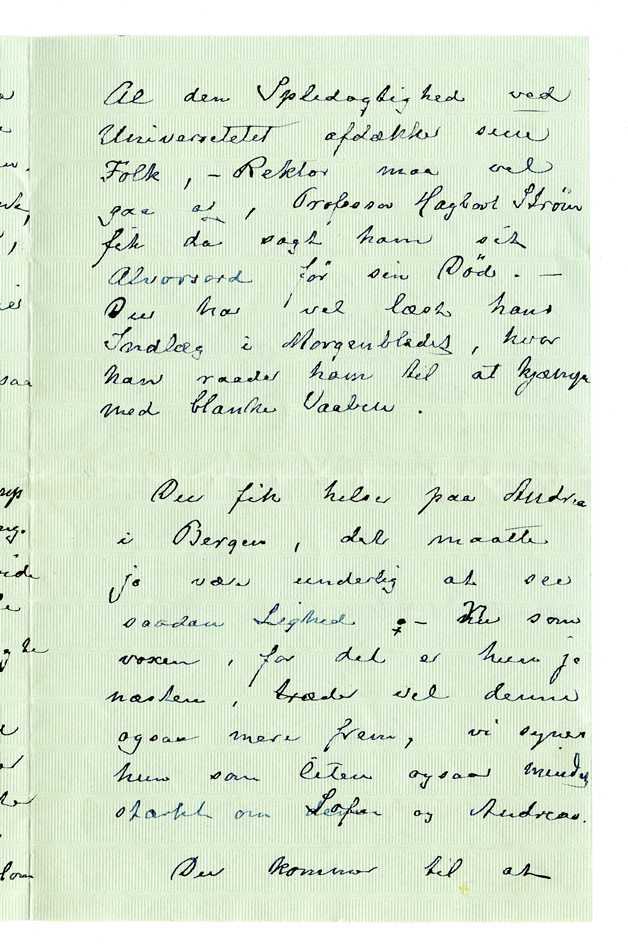 Al den Spledagtighed ved
Universetetet afdækker sine
Folk, – Rektor maa vel
gaa af, Professor Hagbart Strøm
fik da sagt ham sit
Alvorsord før sin Død. –
Du har vel læst hans
Indlæg i Morgenbladet, hvor
han raader ham til at kjæmpe
med blanke Vaaben.
Du fik helse paa Andrea
i Bergen, det maatte
jo være underlig at see
saadan Lighed – Nu som
voxen, for det er hun jo
næsten, træder vel denne
ogsaa mere frem, vi synes
hun som liten ogsaa mindes
stærkt om Sofie og Andreas.
Du kommer til at